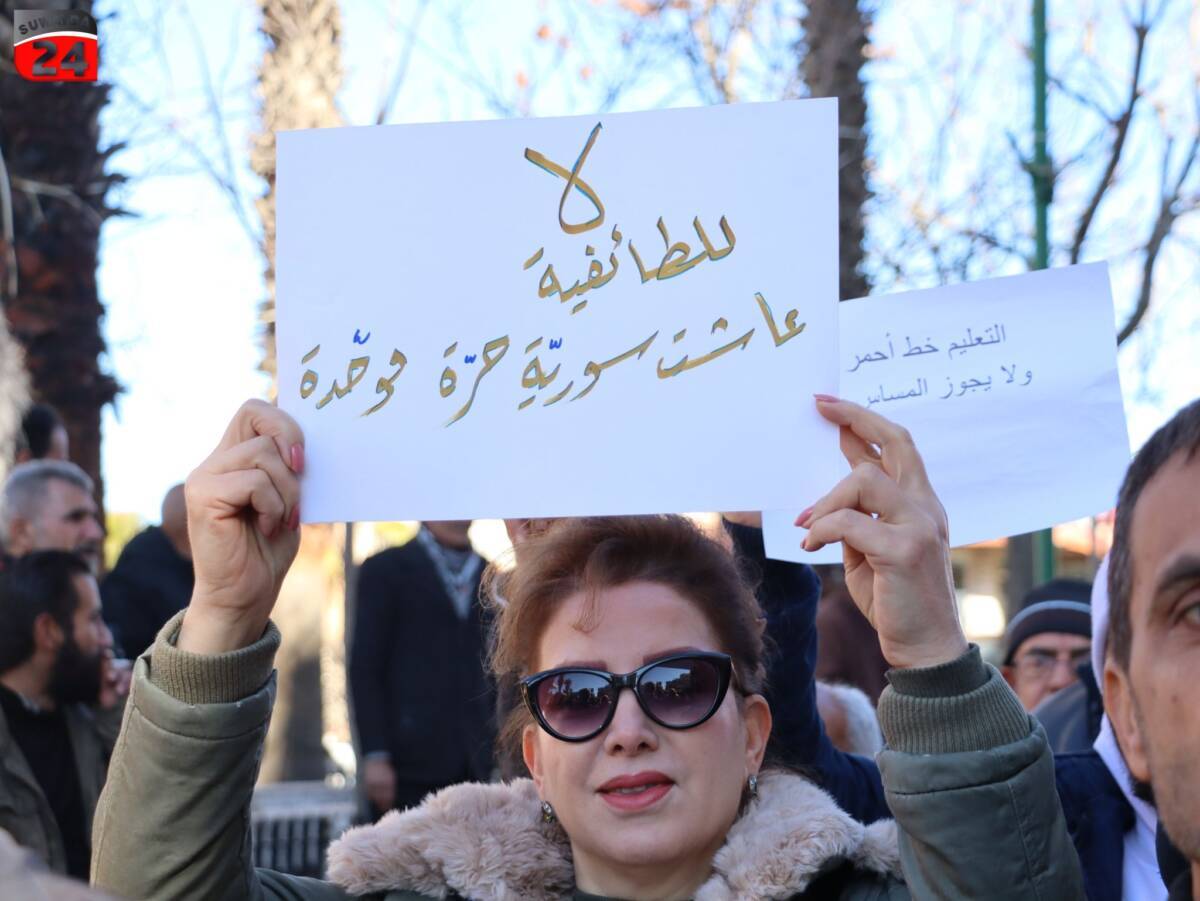 SUWAYDA
24
لا
للطائفية
عاشت سوريّة حرّة موحّدة
التعليم خط أحمر
ولا يجوز المساس